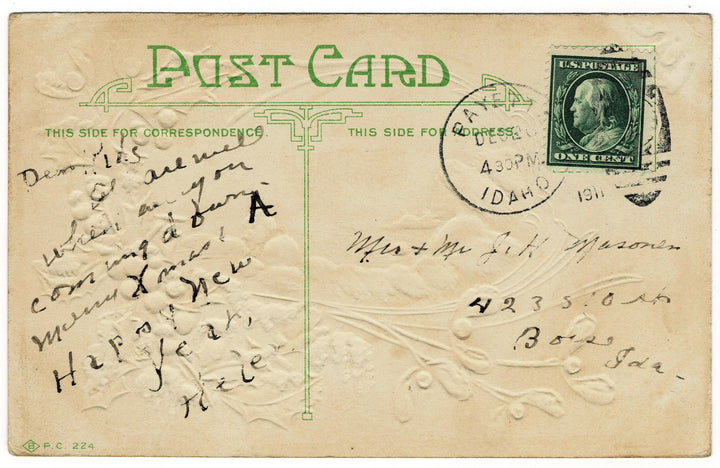 POST CARD
THIS SIDE FOR CORRESPONDENCE.
THIS SIDE FOR ADDRESS.
U.S. POSTAGE
ONE CENT
DEC
4 30 PM
IDAHO
1911
Dear
all are well
when are you
coming down.
Merry Xmas, A
Happy New
Year,
Helen
Mrs & Mr J. H
423 S.
Boise
Ida-
P.C. 224